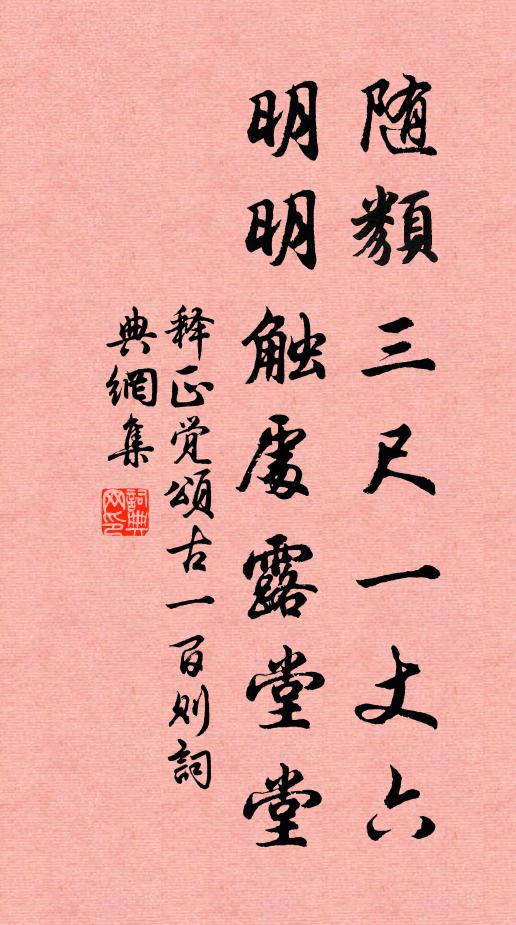 随類三尺一丈六
明明触處露堂堂
释正觉頌古一百则詞
典網集
詞典
网印